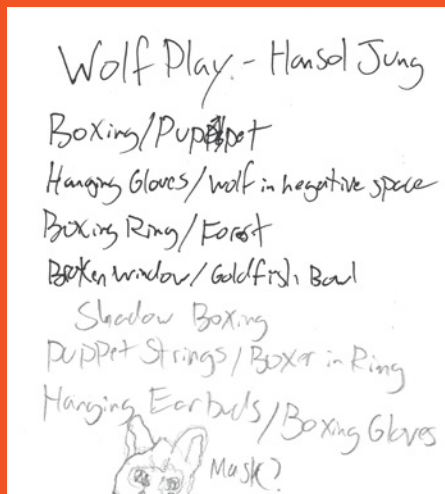 Wolf Play - Hansol Jung
Boxing/Puppet
Hanging Gloves/wolf in negative space
Boxing Ring/Forest
Broken window/Goldfish Bowl
Shadow Boxing
puppet Strings/Boxer in Ring
Hanging Earbuds/Boxing Gloves
Mask?